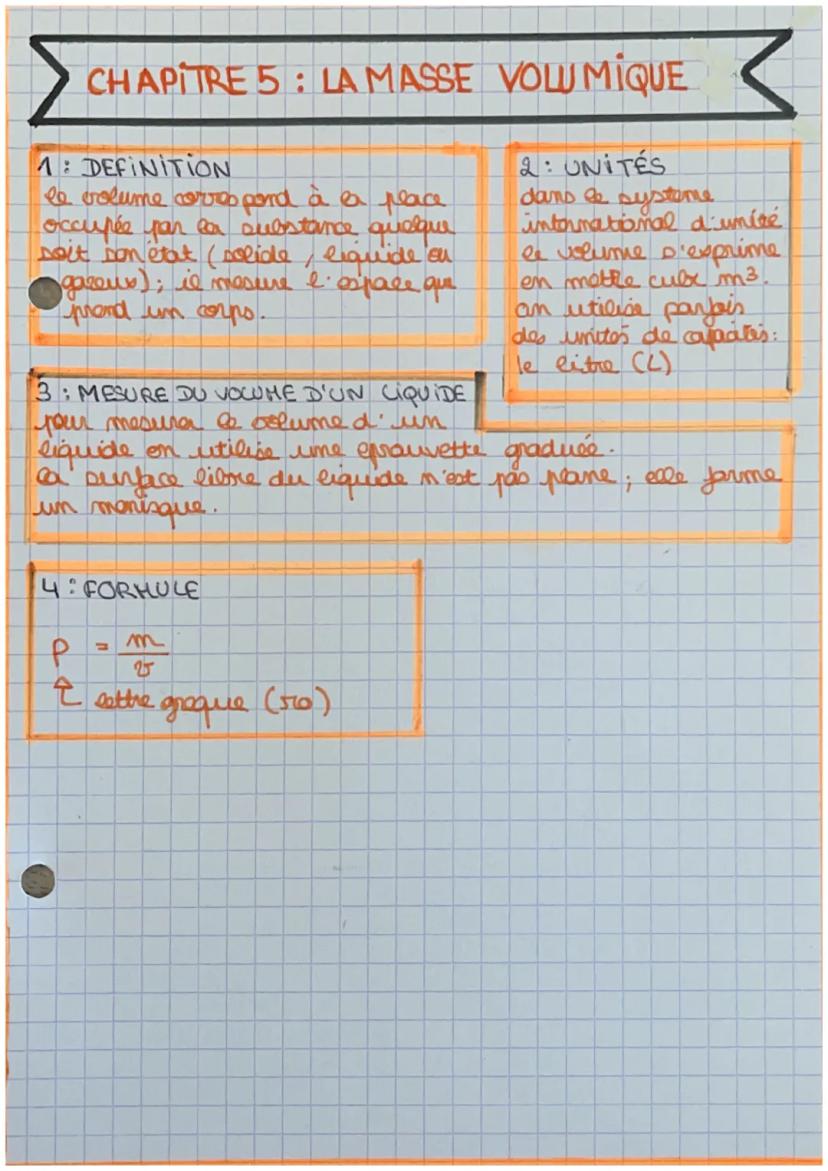 CHAPITRE 5 : LA MASSE VOLUMIQUE
1 : DEFINITION
le volume correspond à la place
occupée par la substance quelque
soit son état (solide, liquide ou
gazeux); il mesure l'espace que
prend un corps.
2 : UNITÉS
dans le systeme
international d'unité
le volume s'exprime
en mettre cube m³.
on utilise parfois
des unités de capacités:
le litre (L)
3 : MESURE DU VOLUME D'UN LIQUIDE
pour mesurer le volume d'un
liquide on utilise une eprouvette graduée.
la surface libre du liquide n'est pas plane ; elle forme
un monisque.
4 : FORMULE
ρ = m/v
↑ lettre greque (ro)